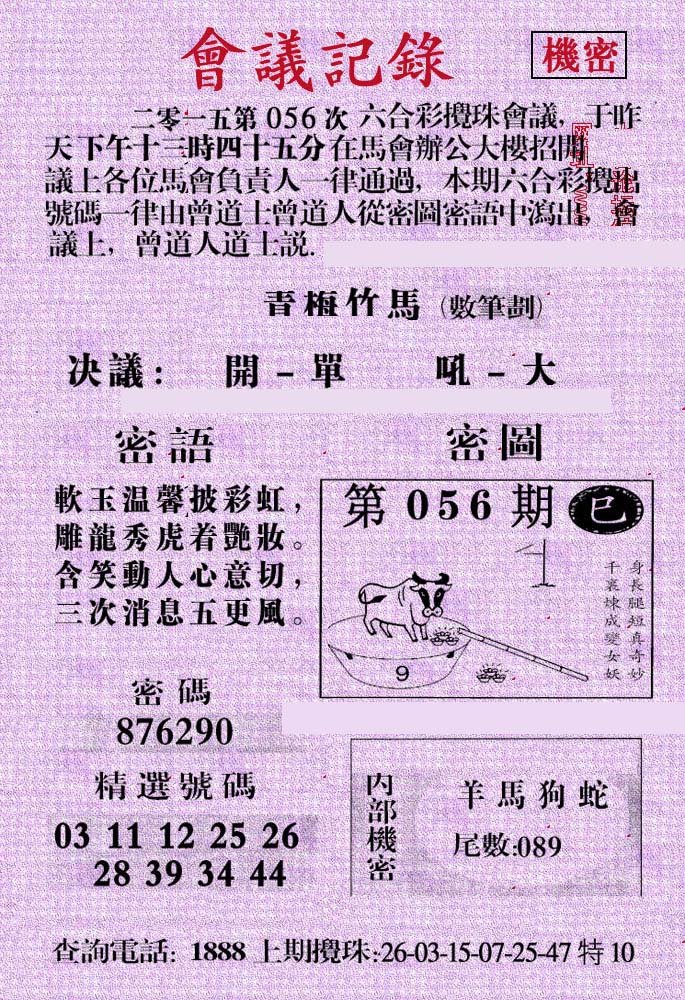 會議記錄
機密
二零一五第056次 六合彩攪珠會議，于昨
天下午十三時四十五分在馬會辦公大樓招開
議上各位馬會負責人一律通過，本期六合彩攪出
號碼一律由曾道士曾道人從密圖密語中瀉出，會
議上，曾道人道士説.
青梅竹馬（數筆劃）
决議： 開－單 吼－大
密語
軟玉温馨披彩虹，
雕龍秀虎着艷妝。
含笑動人心意切，
三次消息五更風。
密圖
第056期 巳
身長腿短真奇妙
千裏煉成變女妖
9
密碼
876290
精選號碼
03 11 12 25 26
28 39 34 44
内部機密
羊馬狗蛇
尾數:089
查詢電話：1888 上期攪珠:26-03-15-07-25-47 特 10